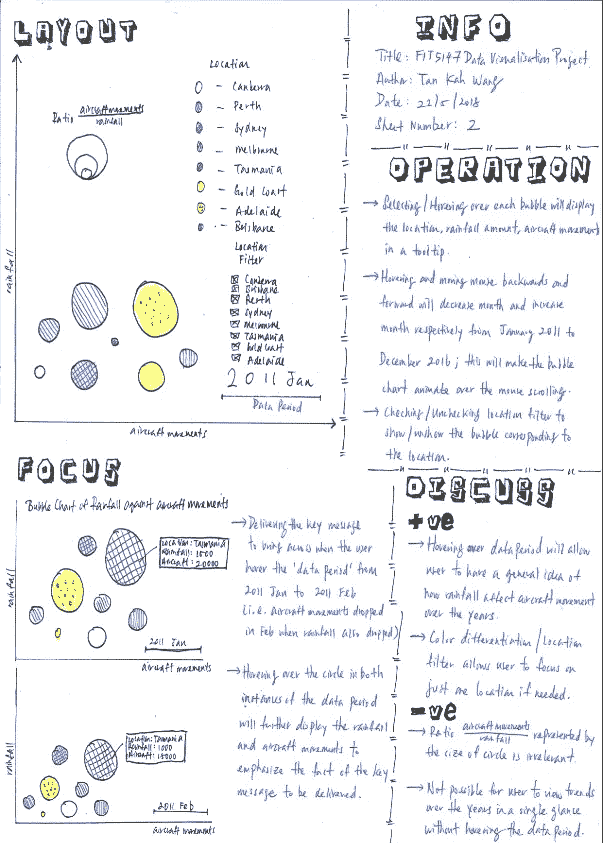 LAYOUT
rainfall
Ratio aircraft movements
rainfall
Location
- Canberra
- Perth
- Sydney
- Melbourne
- Tasmania
- Gold Coast
- Adelaide
- Brisbane
Location
Filter
Canberra
Brisbane
Perth
Sydney
Melbourne
Tasmania
Gold Coast
Adelaide
2011 Jan
Data Period
aircraft movments
INFO
Title: FIT5147 Data Visualisation Project
Author: Tan Kah Wang
Date: 22/5/2018
Sheet Number: 2
OPERATION
→ Selecting/Hovering over each bubble will display
the location, rainfall amount, aircraft movement
in a tooltip.
→ Hovering and moving mouse backwards and
forward will decrease month and increase
month respectively from January 2011 to
December 2016; this will make the bubble
chart animate over the mouse scrolling.
→ Checking/Unchecking location filter to
show/unshow the bubble corresponding to
the location.
FOCUS
Bubble Chart of Rainfall against aircraft movements
rainfall
Location: Tasmania
Rainfall: 1500
Aircraft: 20000
2011 Jan
aircraft movements
rainfall
Location: Tasmania
Rainfall: 1000
Aircraft: 15000
2011 Feb
aircraft movements
→ Delivering the key message
to bring across when the user
hover the 'data period' from
2011 Jan to 2011 Feb
(i.e. aircraft movements dropped
in Feb when rainfall also dropped)
→ Hovering over the circle in both
instances of the data period
will further display the rainfall
and aircraft movements to
emphasize the fact of the key
message to be delivered.
DISCUSS
+ve
→ Hovering over data period will allow
user to have a general idea of
how rainfall affect aircraft movement
over the years.
→ Color differentiation / Location
filter allows user to focus on
just one location if needed.
-ve
→ Ratio aircraft movements
rainfall represented by
the size of circle is irrelevant.
→ Not possible for user to view trends
over the years in a single glance
without hovering the data period.